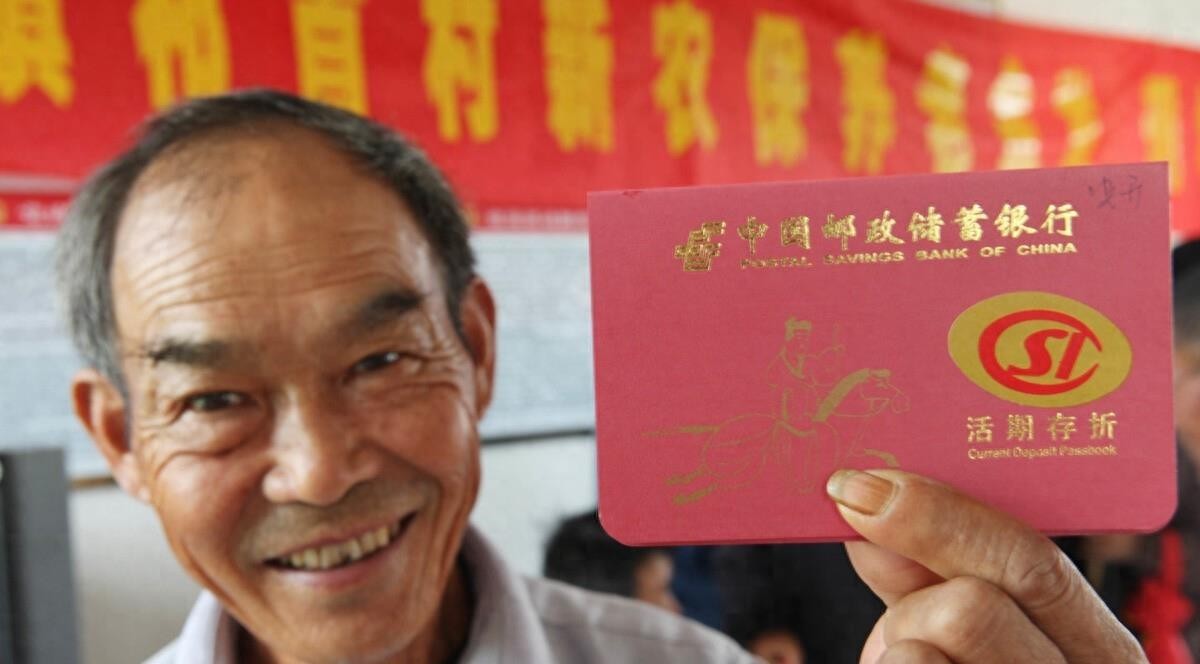 镇首村新农保养老金
中国邮政储蓄银行
POSTAL SAVINGS BANK OF CHINA
SI
活期存折
Current Deposit Passbook